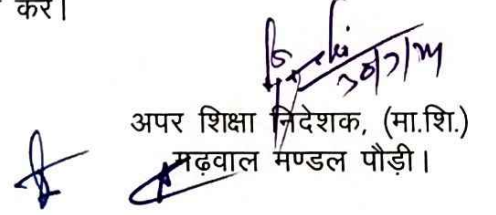 करें।
अपर शिक्षा निदेशक, (मा.शि.)
गढ़वाल मण्डल पौड़ी।